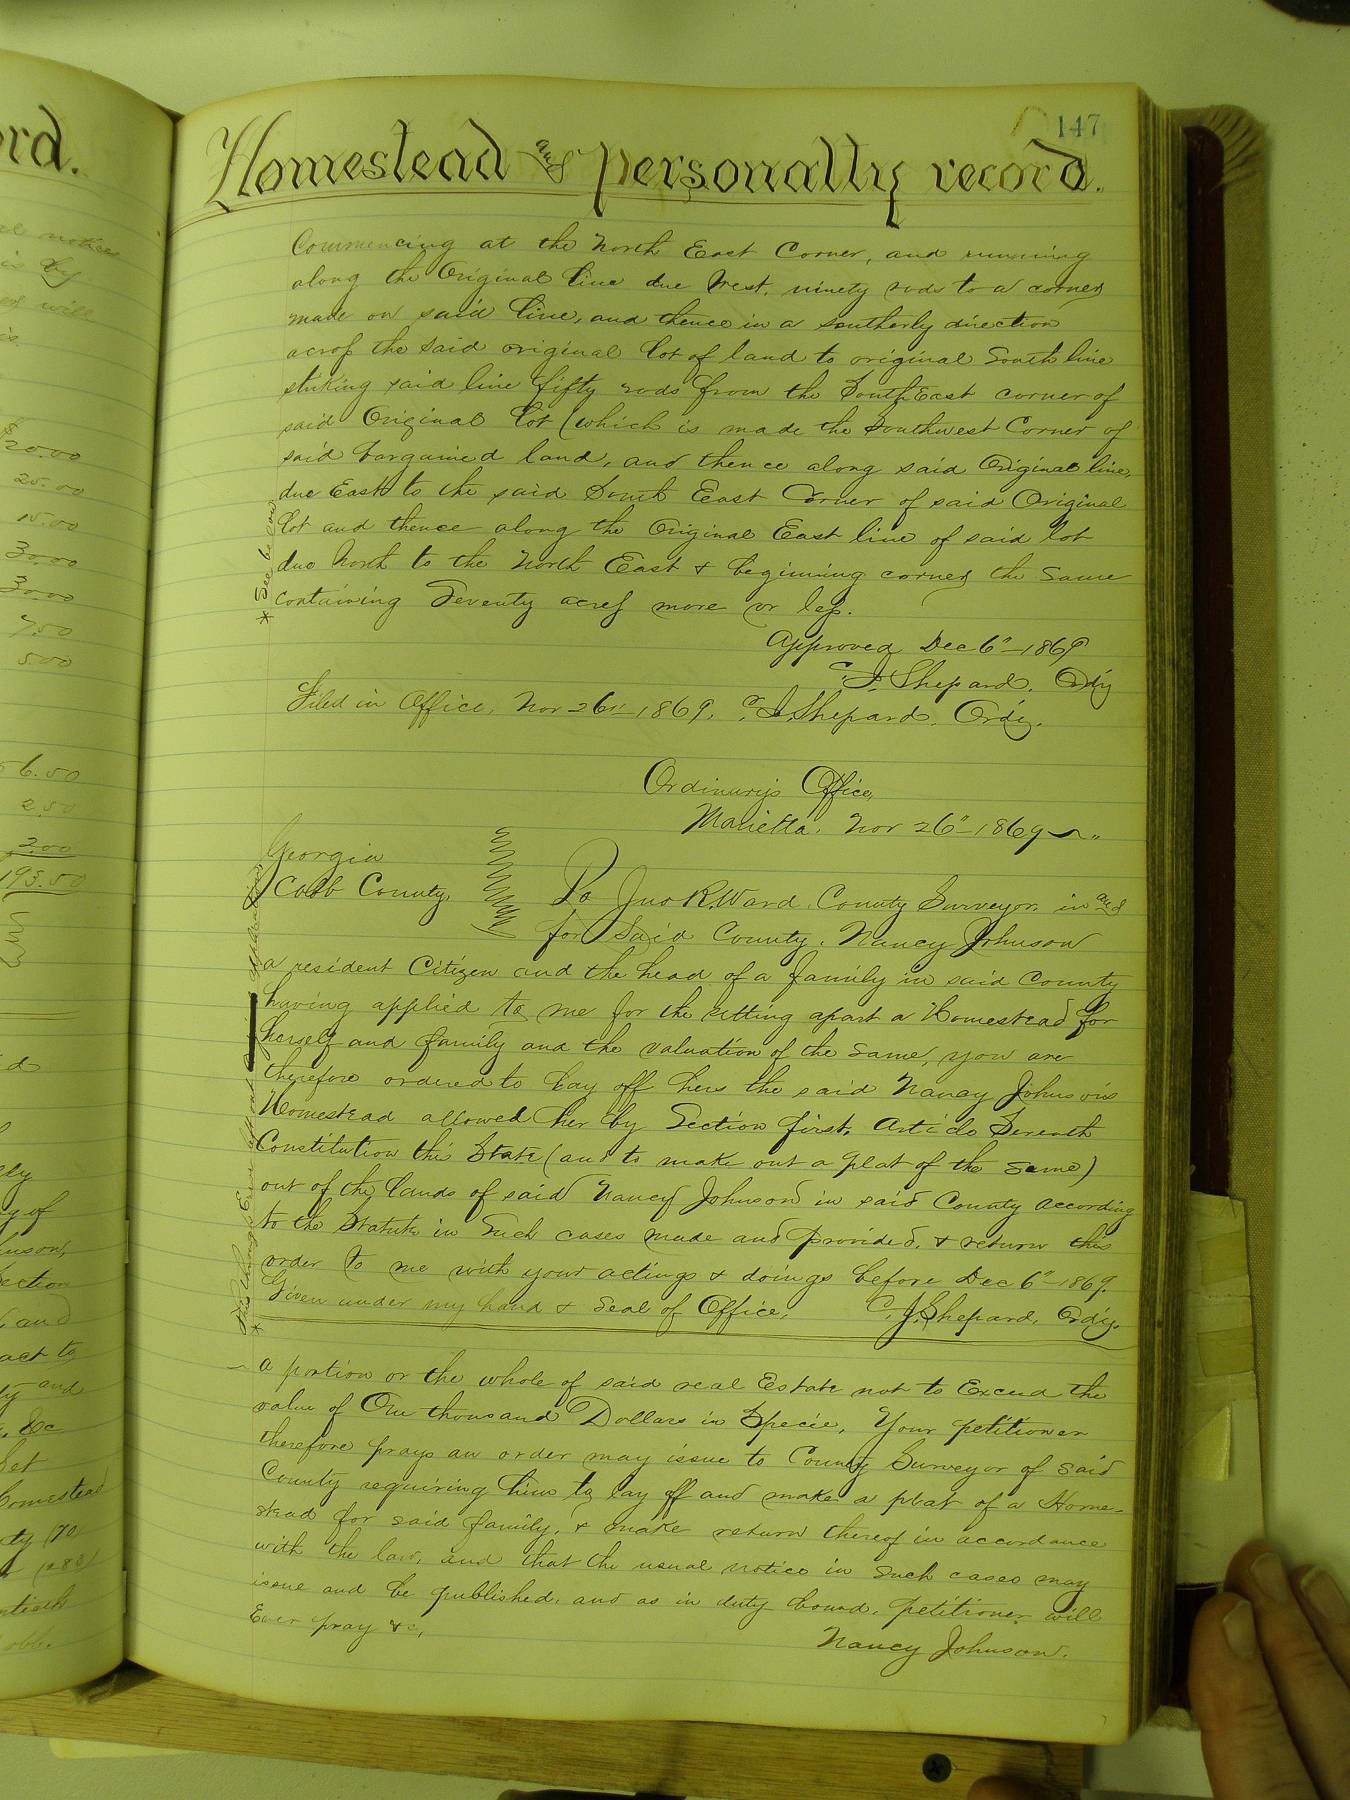 147
Homestead and personalty record.
Commencing at the North East Corner, and running
along the Original line due West, ninety rods to a corner
made on said line, and thence in a southerly direction
across the said original lot of land to original South line
striking said line fifty rods from the South East corner of
said Original lot (which is made the Southwest Corner of
said bargained land, and thence along said Original line,
due East to the said South East Corner of said Original
lot and thence along the Original East line of said lot
due North to the North East & beginning corner the Same
containing Seventy acres more or less.
* See be
Approved Dec 6" 1869
C. J. Shepard. Ordy
Filed in Office, Nov 26" 1869. C. J. Shepard. Ordy.
Ordinarys Office,
Marietta. Nov 26" 1869
Georgia
Cobb County.
To Jno R. Ward County Surveyor in and
for Said County. Nancy Johnson
a resident Citizen and the head of a family in said County
having applied to me for the setting apart a Homestead for
herself and family and the valuation of the same, you are
therefore ordered to lay off hers the said Nancy Johnson's
Homestead allowed her by Section first. Article Seventh
Constitution this State (and to make out a plat of the same)
out of the lands of said Nancy Johnson in said County according
to the Statute in Such cases made and provided, & return this
order to me with your actings & doings before Dec 6" 1869.
Given under my hand & Seal of Office. C. J. Shepard, Ordy.
a portion or the whole of said real Estate not to Exceed the
value of One thousand Dollars in Specie, Your petitioner
therefore prays an order may issue to County Surveyor of said
County requiring him to lay off and make a plat of a Home-
stead for said family, & make return thereof in accordance
with the law, and that the usual notice in Such cases may
issue and be published, and as in duty bound, petitioner will
Ever pray &c,
Nancy Johnson.
ord.
notices
by
will
$20.00
20.00
15.00
30.00
30.00
7.50
5.00
56.50
2.50
2.00
193.50